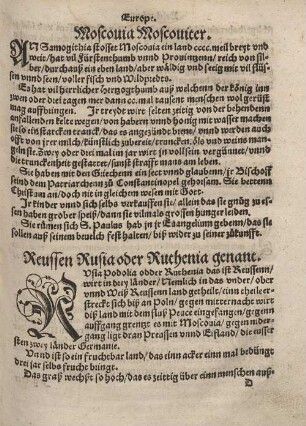 Europe.
Moscouia Moscouiter.
AN Samogithia stosset Moscouia ein land cccc. meil breyt vnd
weit/hat vil Fürstenthumb vnnd Prouintzenn/ reich von sil-
ber/durchauß ein eben land/aber wäldig vnd seeig mit vil flüs-
sen vnnd seen/voller fisch vnd Wildpredts.
Es hat vil herrlicher hertzogthumb auß welchenn der könig inn
zwen oder drei tagen mer dann cc. mal tausent menschen wol gerüst
mag auffbringen. Ir treydt wirt selten zeitig von der behendenn
einfallenden kelte wegen/von habern vnnd honig mit wasser machen
sie so ein starcken tranck/das es angezündt brenn/ vnnd werden auch
offt von jrer milch/künstlich zubereit/truncken. Als vnd weins man-
geln sie. Zwey oder drei mal im jar wirt jn vollsein vergünnet/vnnd
die trunckenheit gestattet/sunst strafft mans am leben.
Sie haben mit den Griechenn ein sect vnnd glaubenn/ jr Bischoff
seind dem Patriarchenn zů Constantinopel gehorsam. Sie betrenn
Christum an/doch nit in gleichem wesen mit Gott.
Ir kinder vnnd sich selbs verkauffen sie/allein das sie gnůg zů es-
sen haben grober speiß/dann sie vilmals grossen hunger leiden.
Sie rümen sich S. Paulus hab jn jr Euangelium gebenn/das sie
sollen auß seinem beuelch fest halten/biß wider zů seiner zůkunfft.
Reussen Rusia oder Ruthenia genant.
RVsia Podolia odder Ruthenia das ist Reussenn/
wirt in drey länder/Nemlich in das vnder/ober
vnnd Weiß Reussen land getheilt/einn theil er-
streckt sich biß an Poln/ gegen mitternacht wirt
diß land mit dem fluß Peace eingefangen/gegenn
auffgang grentzt es mit Moscouia/ gegen nider-
gang ligt dran Preussen vnnd Eifland/ die eusser
sten zwey länder Germanie.
Vnnd ist so ein fruchtbar land/das einn acker einn mal bedüngt
drei jar selbs frucht bringt.
Das graß wechßt so hoch/das es zeittig über einn menschen auß-
D